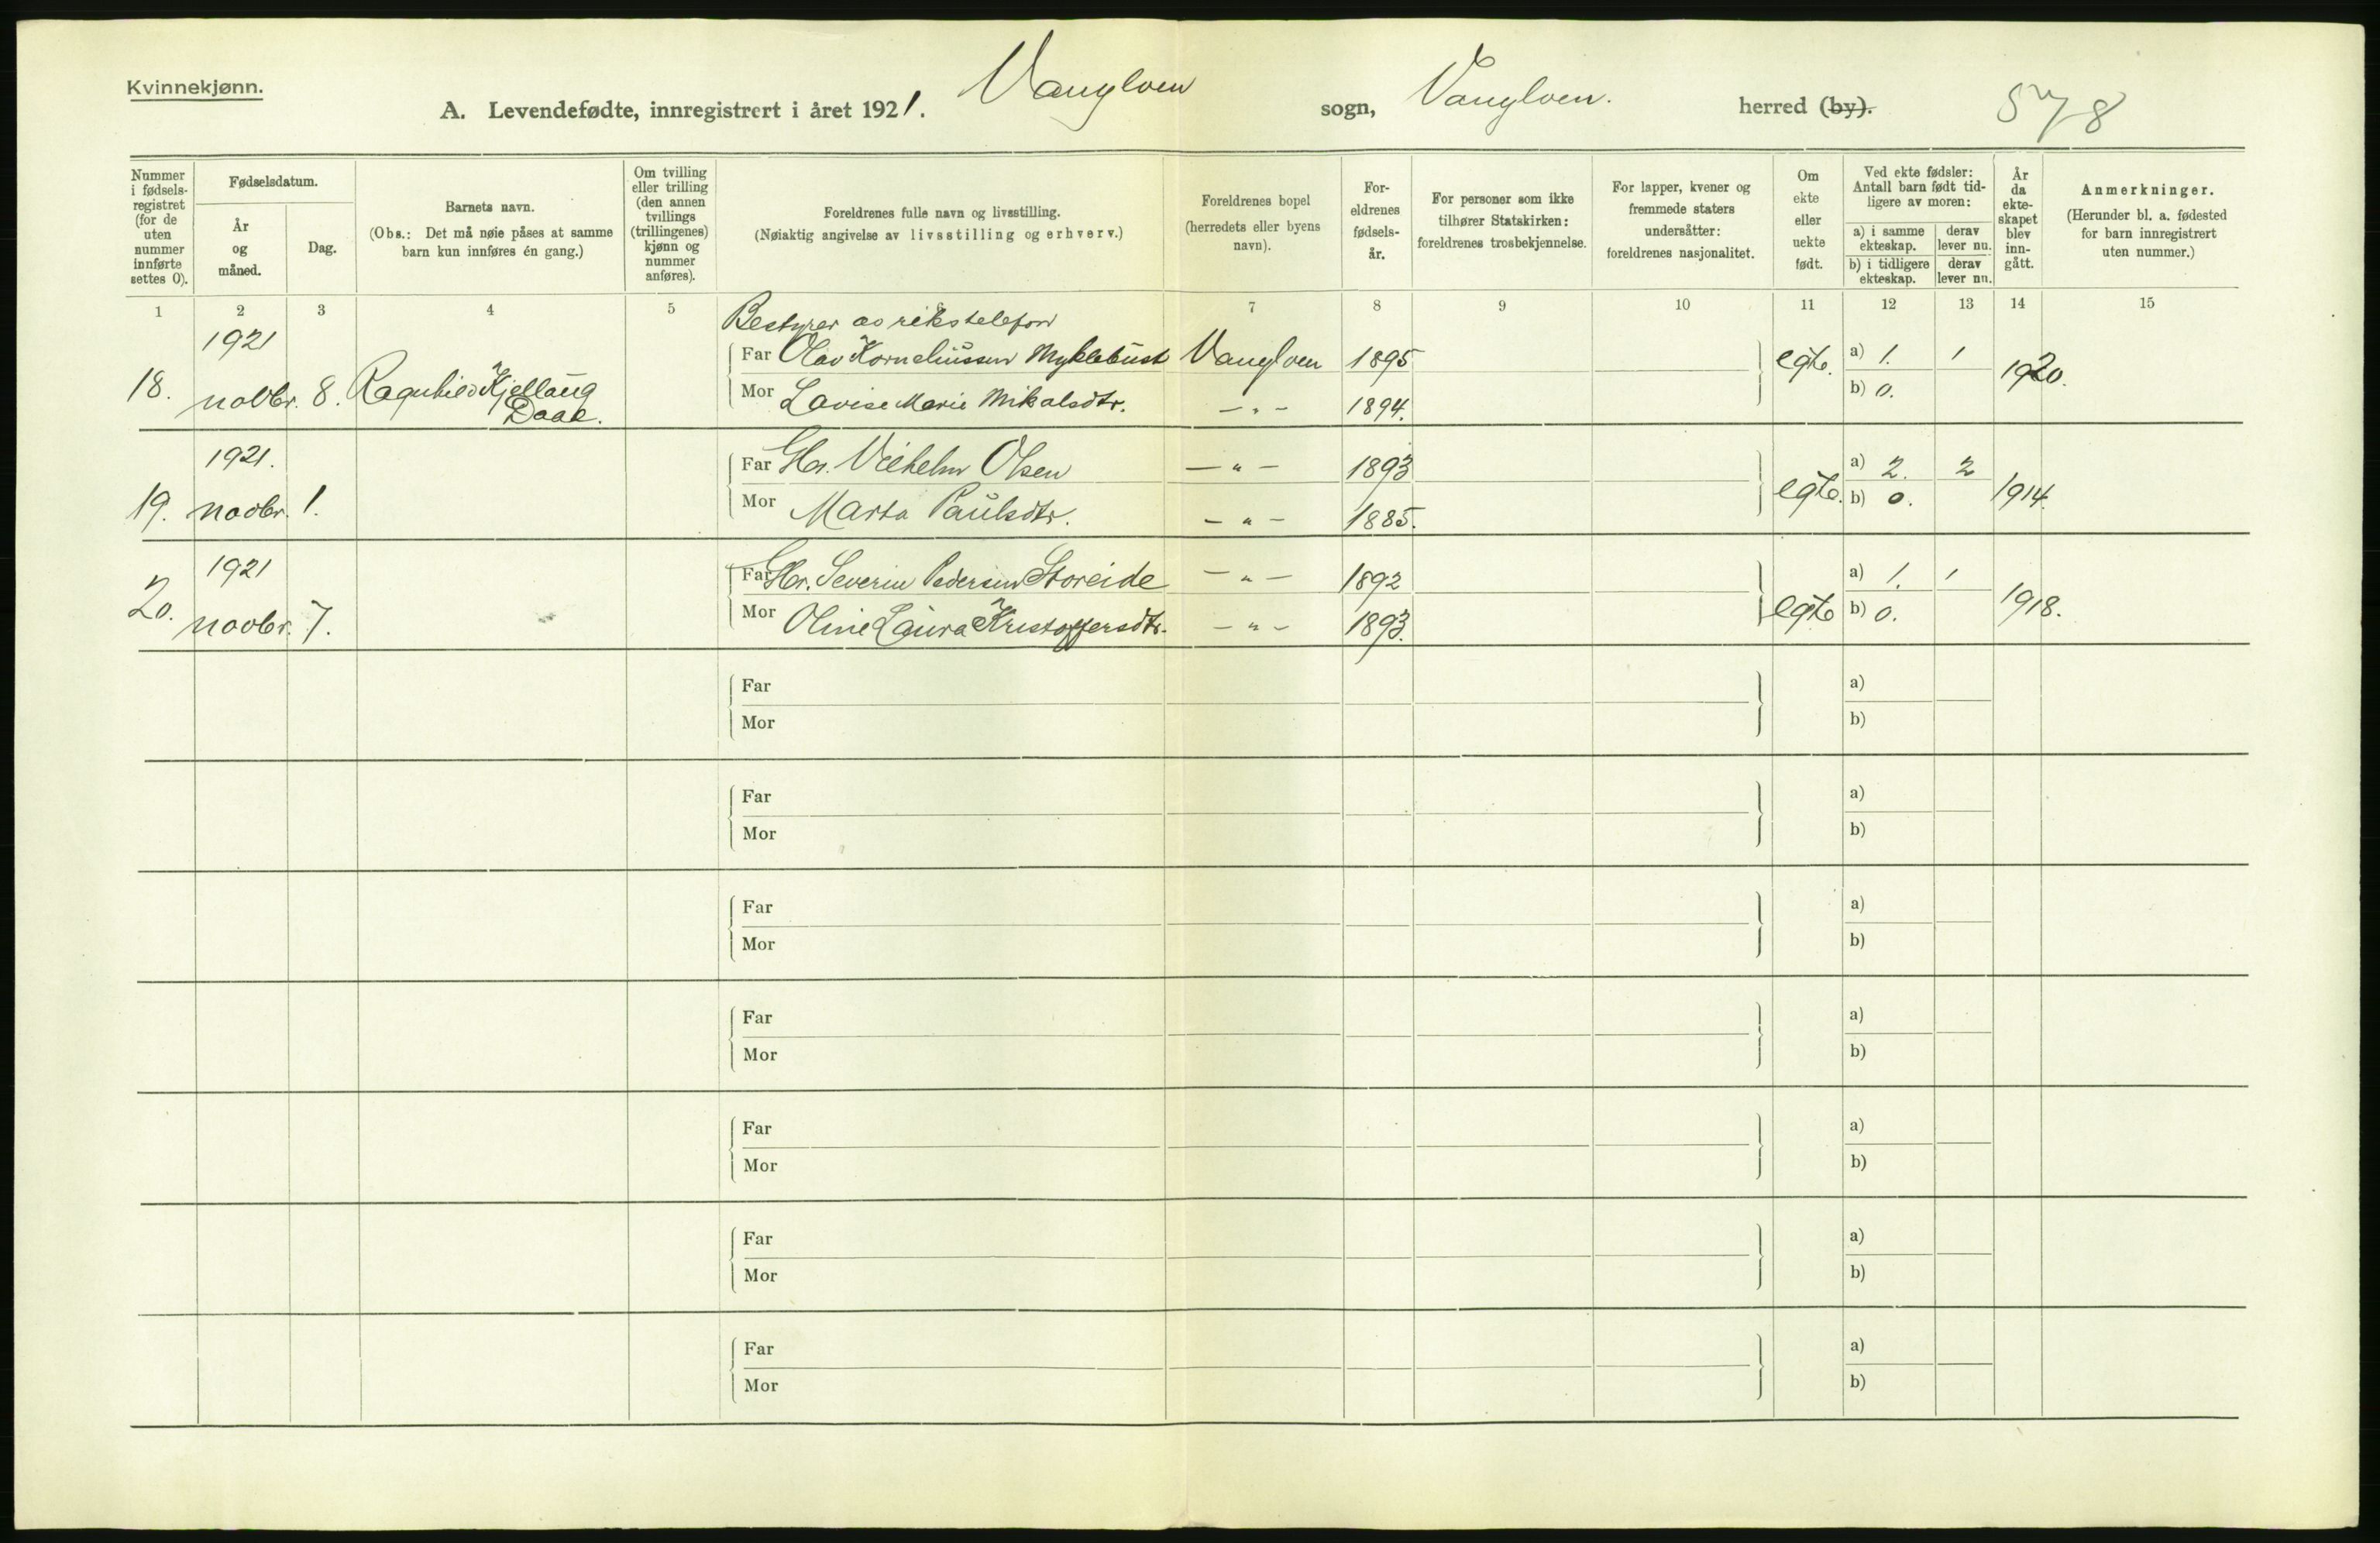 Kvinnekjønn.
A. Levendefødte, innregistrert i året 1921. Vanylven sogn, Vanylven. herred (by). 578
Nummer i fødsels-registret (for de uten nummer innførte settes 0).
Fødselsdatum.
År og måned.
Dag.
Barnets navn.
(Obs.: Det må nøie påses at samme barn kun innføres én gang.)
Om tvilling eller trilling (den annen tvillings (trillingenes) kjønn og nummer anføres).
Foreldrenes fulle navn og livsstilling.
(Nøiaktig angivelse av livsstilling og erhverv.)
Foreldrenes bopel (herredets eller byens navn).
For-eldrenes fødsels-år.
For personer som ikke tilhører Statskirken: foreldrenes trosbekjennelse.
For lapper, kvener og fremmede staters undersåtter: foreldrenes nasjonalitet.
Om ekte eller uekte født.
Ved ekte fødsler: Antall barn født tid-ligere av moren:
a) i samme ekteskap.
derav lever nu.
b) i tidligere ekteskap.
derav lever nu.
År da ekte-skapet blev inn-gått.
Anmerkninger.
(Herunder bl. a. fødested for barn innregistrert uten nummer.)
1 2 3 4 5 7 8 9 10 11 12 13 14 15
Bestyrer av rikstelefon
18. 1921 novbr. 8. Ragnhild Kjellaug Daae.
Far Olav Korneliussen Myklebust Vanylven 1895 egte. a) 1. 1 1920.
Mor Lovise Marie Mikalsdtr. – „ – 1894. b) 0.
19. 1921. novbr. 1.
Far Gbr. Vilhelm Olsen – „ – 1893 egte. a) 2. 2 1914.
Mor Marta Paulsdtr. – „ – 1885. b) 0.
20. 1921 novbr. 7.
Far Gbr. Severin Pedersen Storeide – „ – 1892 egte a) 1. 1 1918.
Mor Oline Laura Kristoffersdtr. – „ – 1893. b) 0.
Far a)
Mor b)
Far a)
Mor b)
Far a)
Mor b)
Far a)
Mor b)
Far a)
Mor b)
Far a)
Mor b)
Far a)
Mor b)